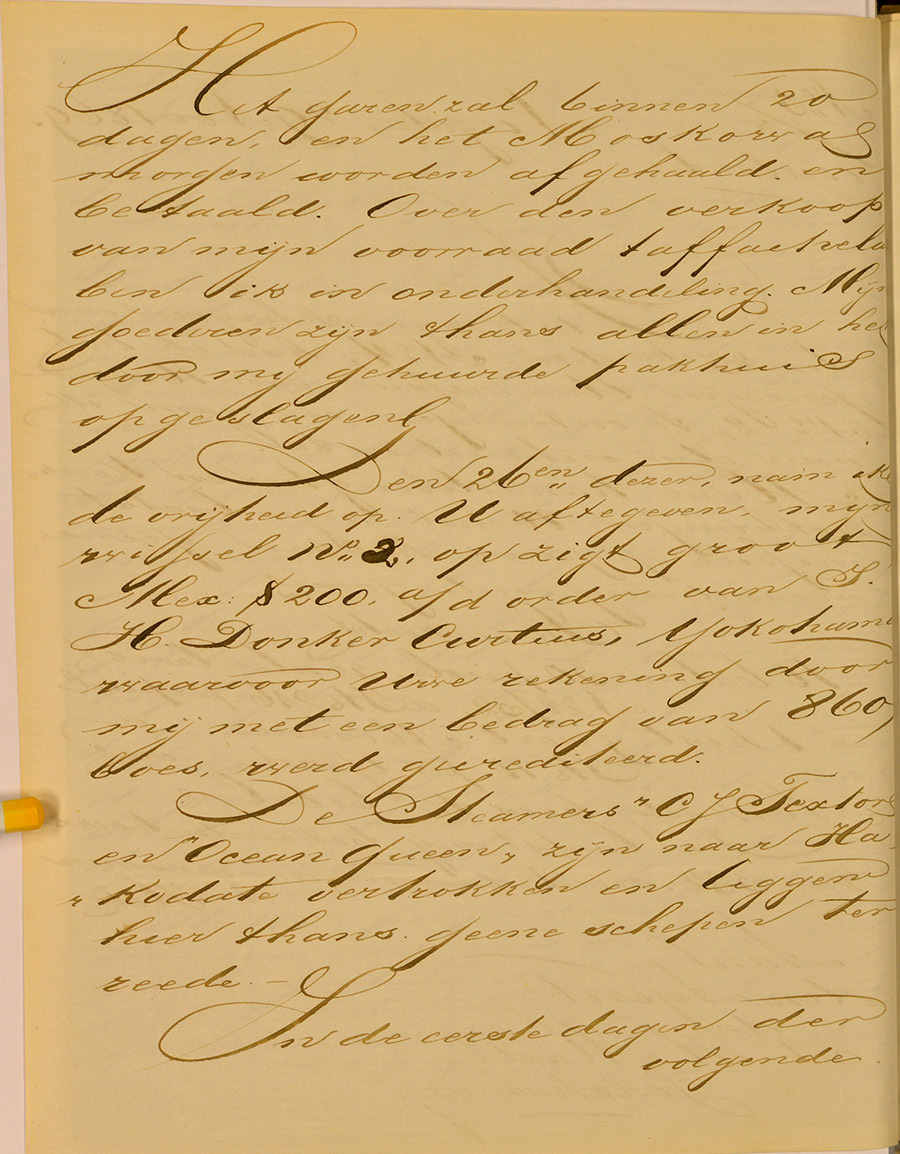 Het garen zal binnen 20
dagen, en het Moskowas
morgen worden afgehaald en
betaald. Over den verkoop
van mijn voorraad taffachela
ben ik in onderhandeling. Mijn
goederen zijn thans allen in het
door mij gehuurde pakhuis
opgeslagen
Den 26en dezer, nam ik
de vrijheid op U aftegeven, mijn
wissel No 2, op zigt groot
Mex: $ 200. a/d order van J.
H. Donker Curtius, Yokohama
waarvoor Uwe rekening door
mij met een bedrag van 860
boes, werd gecrediteerd.
De Steamers "C J Textor
en "Ocean Queen" zijn naar Ha
"kodate vertrokken en liggen
hier thans geene schepen ter
reede. —
In de eerste dagen der
volgende